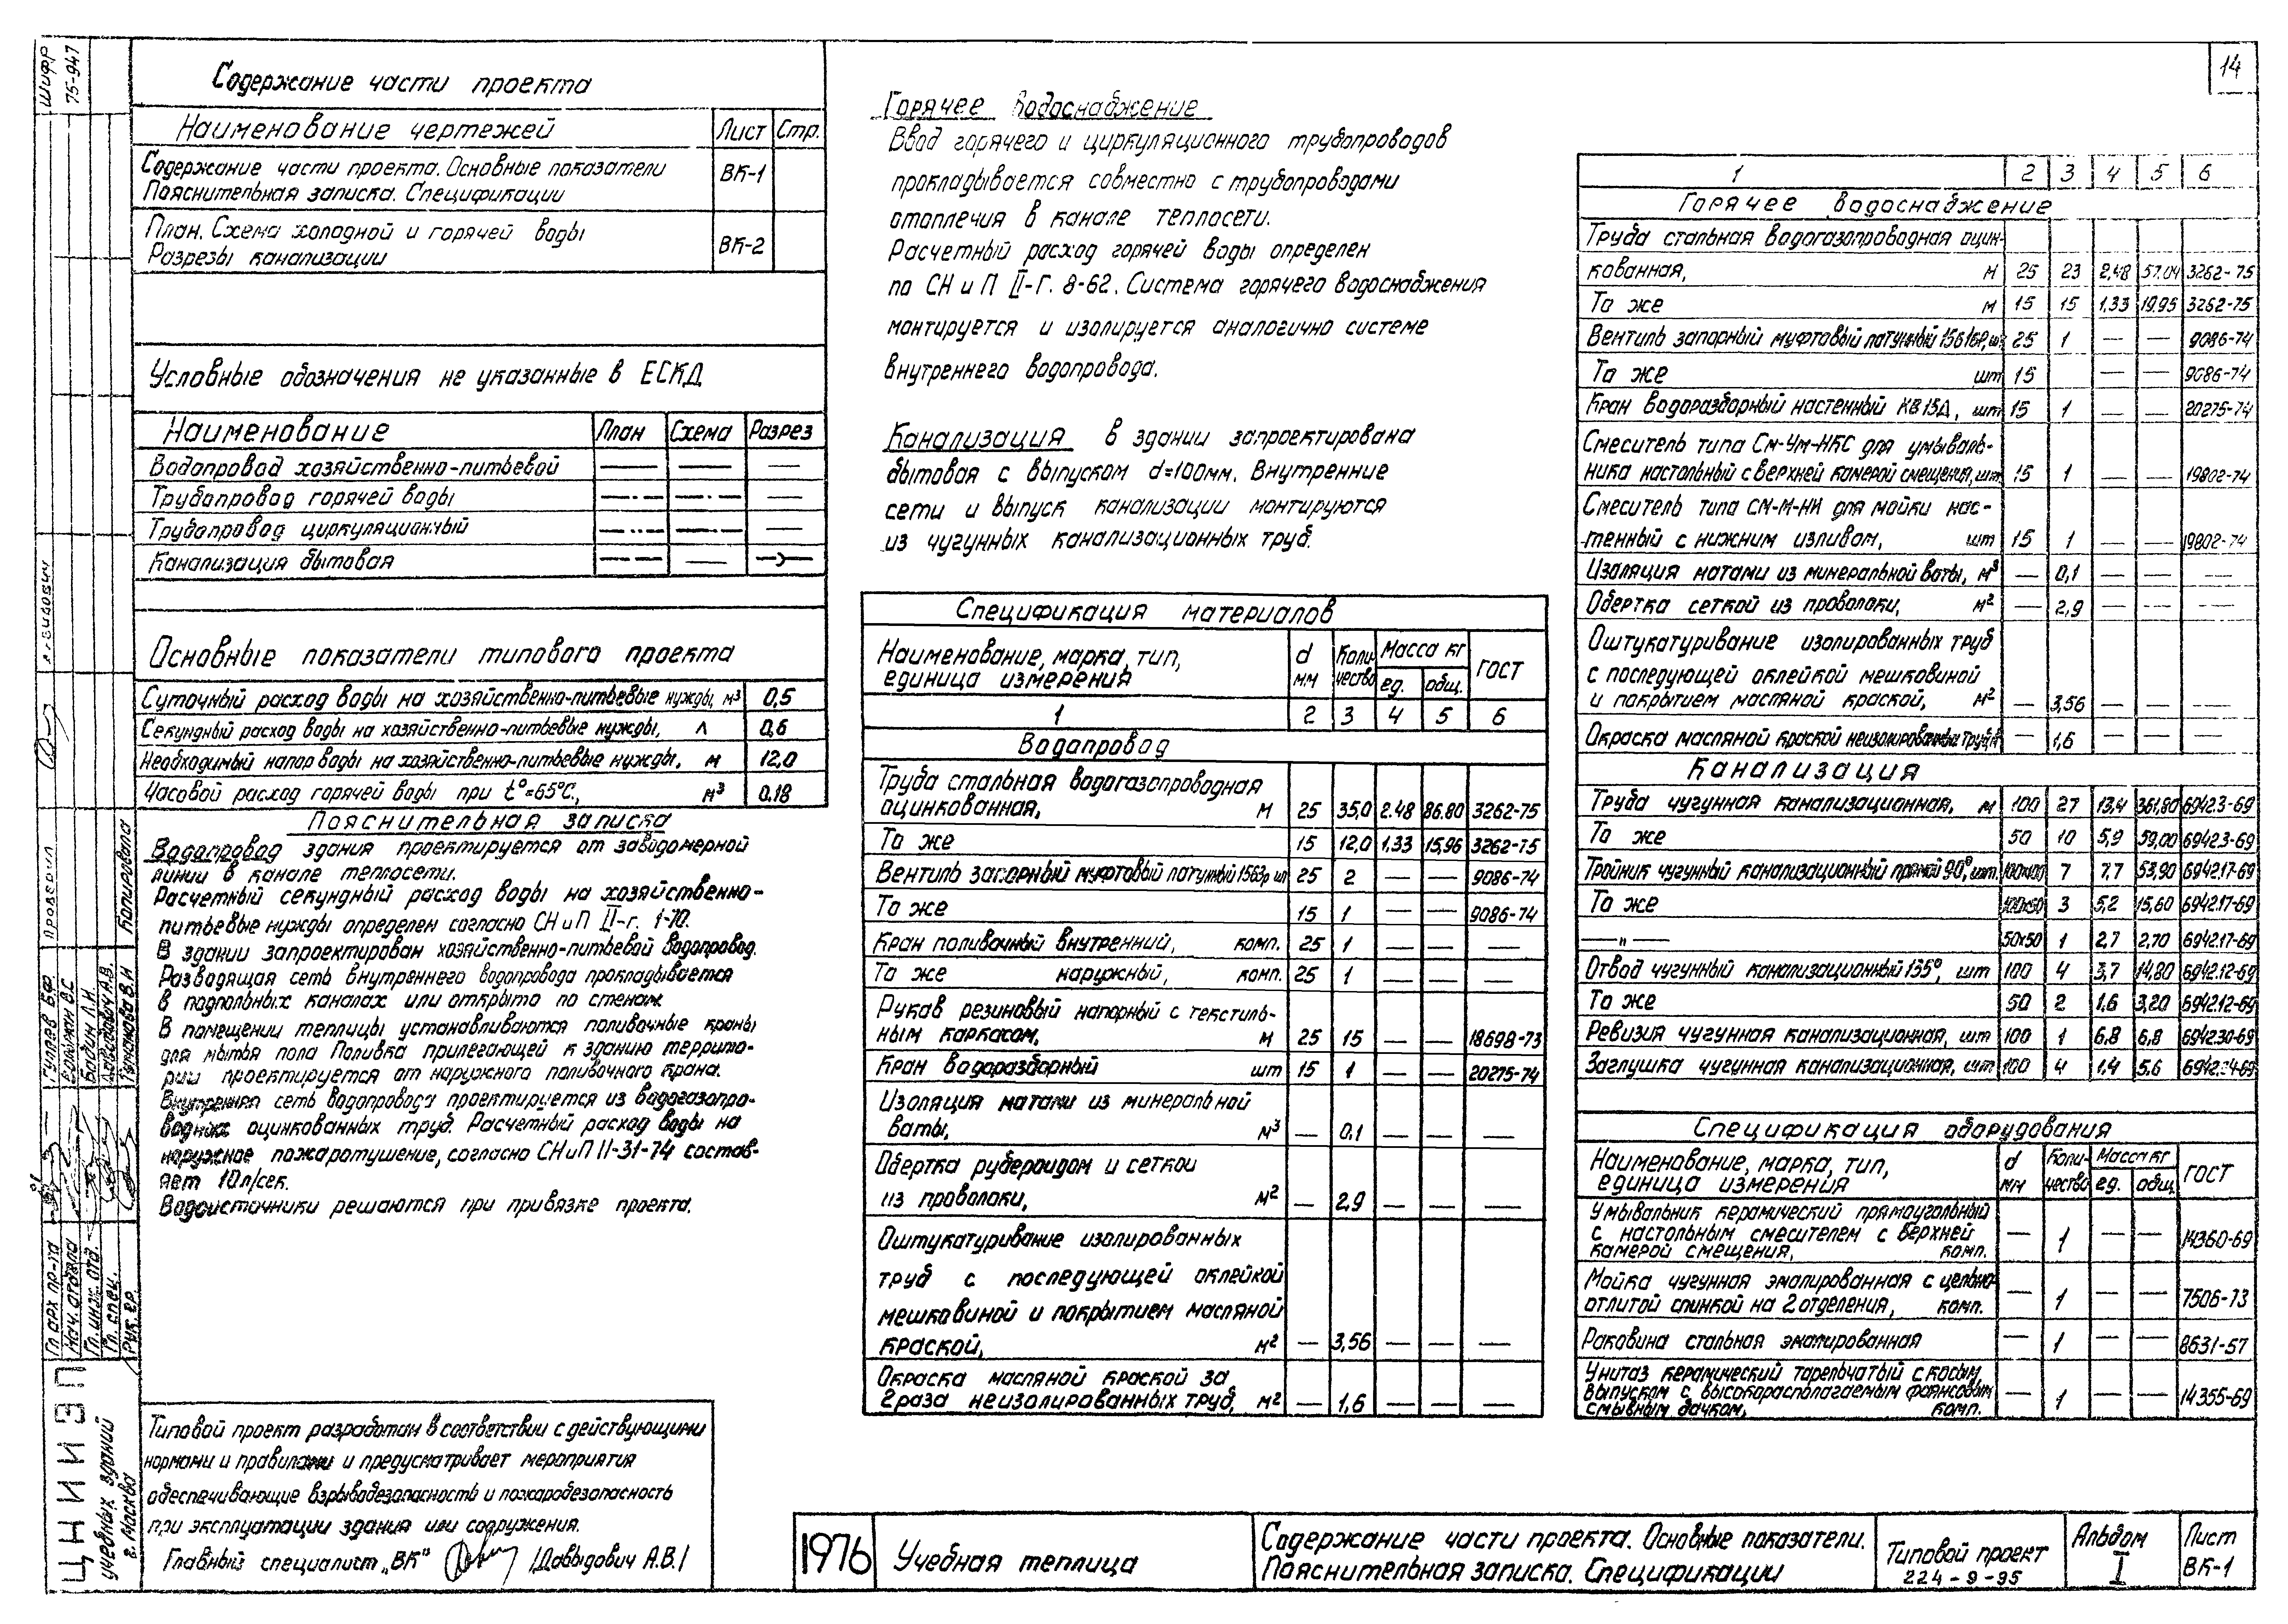 14
Шифр
75-947
Содержание части проекта
Наименование чертежей Лист Стр.
Содержание части проекта. Основные показатели
Пояснительная записка. Спецификации ВК-1
План. Схема холодной и горячей воды
Разрезы канализации ВК-2
Условные обозначения не указанные в ЕСКД
Наименование План Схема Разрез
Водопровод хозяйственно-питьевой
Трубопровод горячей воды
Трубопровод циркуляционный
Канализация бытовая
Основные показатели типового проекта
Суточный расход воды на хозяйственно-питьевые нужды, м³ 0,5
Секундный расход воды на хозяйственно-питьевые нужды, л 0,6
Необходимый напор воды на хозяйственно-питьевые нужды, м 12,0
Часовой расход горячей воды при t°=65°С, м³ 0.18
Пояснительная записка
Водопровод здания проектируется от заводомерной
линии в канале теплосети.
Расчетный секундный расход воды на хозяйственно-
питьевые нужды определен согласно СНиП II-г. 1-70.
В здании запроектирован хозяйственно-питьевой водопровод.
Разводящая сеть внутреннего водопровода прокладывается
в подпольных каналах или открыто по стенам.
В помещении теплицы устанавливаются поливочные краны
для мытья пола Поливка прилегающей к зданию террито-
рии проектируется от наружного поливочного крана.
Внутренняя сеть водопровода проектируется из водогазопро-
водных оцинкованных труб. Расчетный расход воды на
наружное пожаротушение, согласно СНиП II-31-74 состав-
ляет 10л/сек.
Водоисточники решаются при привязке проекта.
Типовой проект разработан в соответствии с действующими
нормами и правилами и предусматривает мероприятия
обеспечивающие взрывобезопасность и пожаробезопасность
при эксплуатации здания или сооружения.
Главный специалист „ВК" /Давыдович А.В./
Горячее водоснабжение
Ввод горячего и циркуляционного трубопроводов
прокладывается совместно с трубопроводами
отопления в канале теплосети.
Расчетный расход горячей воды определен
по СН и П II-Г. 8-62. Система горячего водоснабжения
монтируется и изолируется аналогично системе
внутреннего водопровода.
Канализация в здании запроектирована
бытовая с выпуском d=100мм. Внутренние
сети и выпуск канализации монтируются
из чугунных канализационных труб.
Спецификация материалов
Наименование, марка, тип,
единица измерения d мм Коли-
чество Масса кг ед. общ. ГОСТ
1 2 3 4 5 6
Водопровод
Труба стальная водогазопроводная
оцинкованная, м 25 35,0 2.48 86.80 3262-75
То же 15 12,0 1,33 15,96 3262-75
Вентиль запорный муфтовый латунный шт 25 2 — — 9086-74
То же 15 1 — — 9086-74
Кран поливочный внутренний, комп. 25 1 — — —
То же наружный, комп. 25 1 — — —
Рукав резиновый напорный с текстиль-
ным каркасом, м 25 15 — — 18698-73
Кран водоразборный шт 15 1 — — 20275-74
Изоляция матами из минеральной
ваты, м³ — 0,1 — — —
Обертка рубероидом и сеткой
из проволоки, м² — 2,9 — — —
Оштукатуривание изолированных
труб с последующей оклейкой
мешковиной и покрытием масляной
краской, м² — 3,56 — — —
Окраска масляной краской за
2 раза неизолированных труб, м² — 1,6 — — —
1 2 3 4 5 6
Горячее водоснабжение
Труба стальная водогазопроводная оцин-
кованная, м 25 23 2,48 57.04 3262-75
То же м 15 15 1,33 19.95 3262-75
Вентиль запорный муфтовый латунный 25 1 — — 9086-74
То же шт 15 — — 9086-74
Кран водоразборный настенный КВ15Д, шт 15 1 — — 20275-74
Смеситель типа См-Ум-НКС для умываль-
ника настольный с верхней камерой смещения, шт 15 1 — — 19802-74
Смеситель типа СМ-М-НН для мойки нас-
тенный с нижним изливом, шт 15 1 — — 19802-74
Изоляция матами из минеральной ваты, м³ — 0,1 — — —
Обертка сеткой из проволоки, м² — 2,9 — — —
Оштукатуривание изолированных труб
с последующей оклейкой мешковиной
и покрытием масляной краской, м² — 3,56 — — —
Окраска масляной краской неизолированных труб, — 1,6 — — —
Канализация
Труба чугунная канализационная, м 100 27 13,4 361,80 6942.3-69
То же 50 10 5,9 59,00 6942.3-69
Тройник чугунный канализационный прямой 90°, шт. 100х100 7 7,7 53,90 6942.17-69
То же 100х50 3 5,2 15,60 6942.17-69
— " — 50х50 1 2,7 2,70 6942.17-69
Отвод чугунный канализационный 135°, шт 100 4 3,7 14,80 6942.12-69
То же 50 2 1,6 3,20 6942.12-69
Ревизия чугунная канализационная, шт 100 1 6,8 6,8 6942.30-69
Заглушка чугунная канализационная, шт 100 4 1,4 5.6 6942.24-69
Спецификация оборудования
Наименование, марка, тип,
единица измерения d мм Коли-
чество Масса кг ед. общ. ГОСТ
Умывальник керамический прямоугольный
с настольным смесителем с верхней
камерой смещения, комп. — 1 — — 14360-69
Мойка чугунная эмалированная с цельно-
отлитой спинкой на 2 отделения, комп. — 1 — — 7506-73
Раковина стальная эмалированная — 1 — — 8631-57
Унитаз керамический тарельчатый с косым
выпуском с высокорасполагаемым фаянсовым
смывным бачком, комп. — 1 — — 14355-69
ЦНИИЭП
учебных зданий
г. Москва
Гл. арх. пр-та Гуляев Б.Ф.
Нач. отдела
Гл. инж. отд. Бадин Л.Н.
Гл. спец. Давидович А.В.
Рук. гр. Тумакова В.Н
Проверил
Копировала
1976
Учебная теплица
Содержание части проекта. Основные показатели.
Пояснительная записка. Спецификации
Типовой проект
224-9-95
Альбом
I
Лист
ВК-1